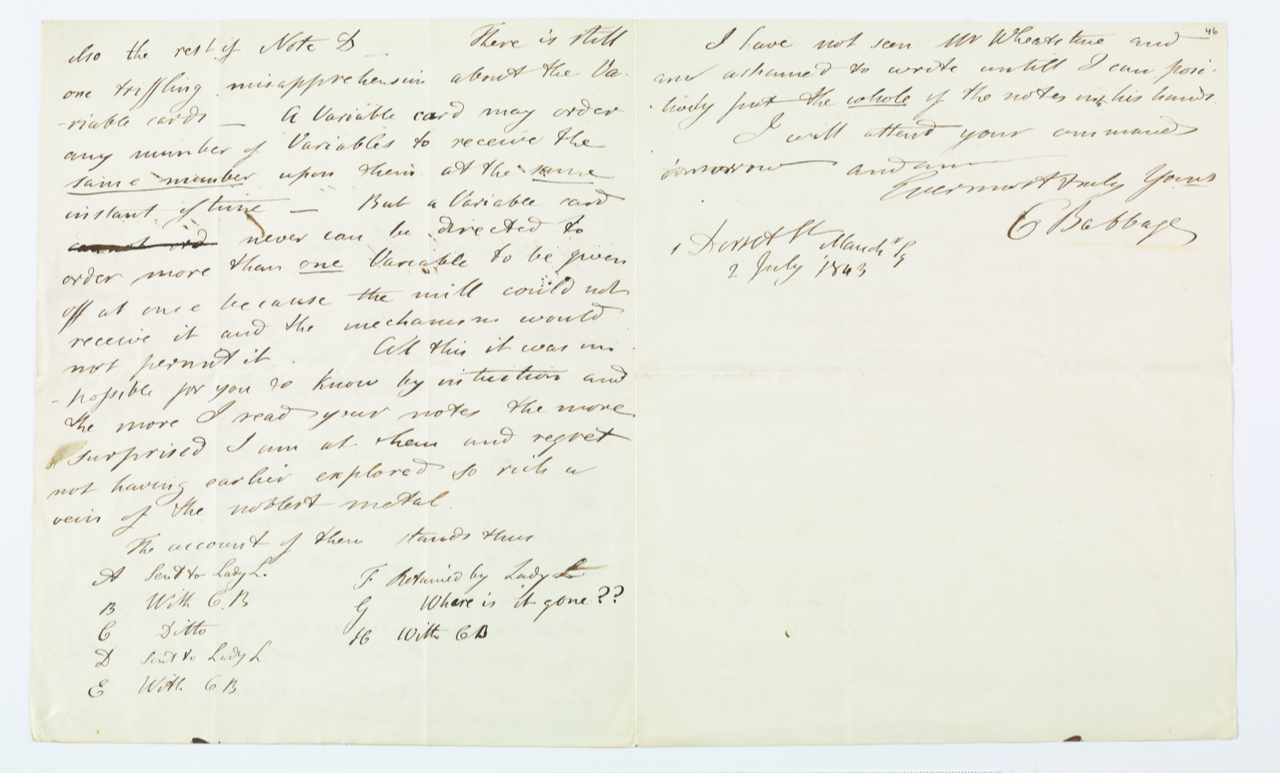 also the rest of Note D — There is still
one triffling misapprehension about the Va-
-riable cards — A Variable card may order
any number of Variables to receive the
same number upon them at the same
instant of time — But a Variable card
never can be directed to
order more than one Variable to be given
off at once because the mill could not
receive it and the mechanism would
not permit it. All this it was im-
-possible for you to know by intuition and
the more I read your notes the more
surprised I am at them and regret
not having earlier explored so rich a
vein of the noblest metal.
The account of them stands thus
A Sent to Lady L.
B With C.B
C Ditto
D Sent to Lady L
E With C B
F Retained by Lady L
G Where is it gone??
H With CB
46
I have not seen Mr Wheatstone and
am ashamed to write untill I can posi-
-tively put the whole of the notes in his hands.
I will attend your commands
tomorrow and am
Evermost truly Yours
C Babbage
1 Dorset St Manchr Sq
2 July 1843